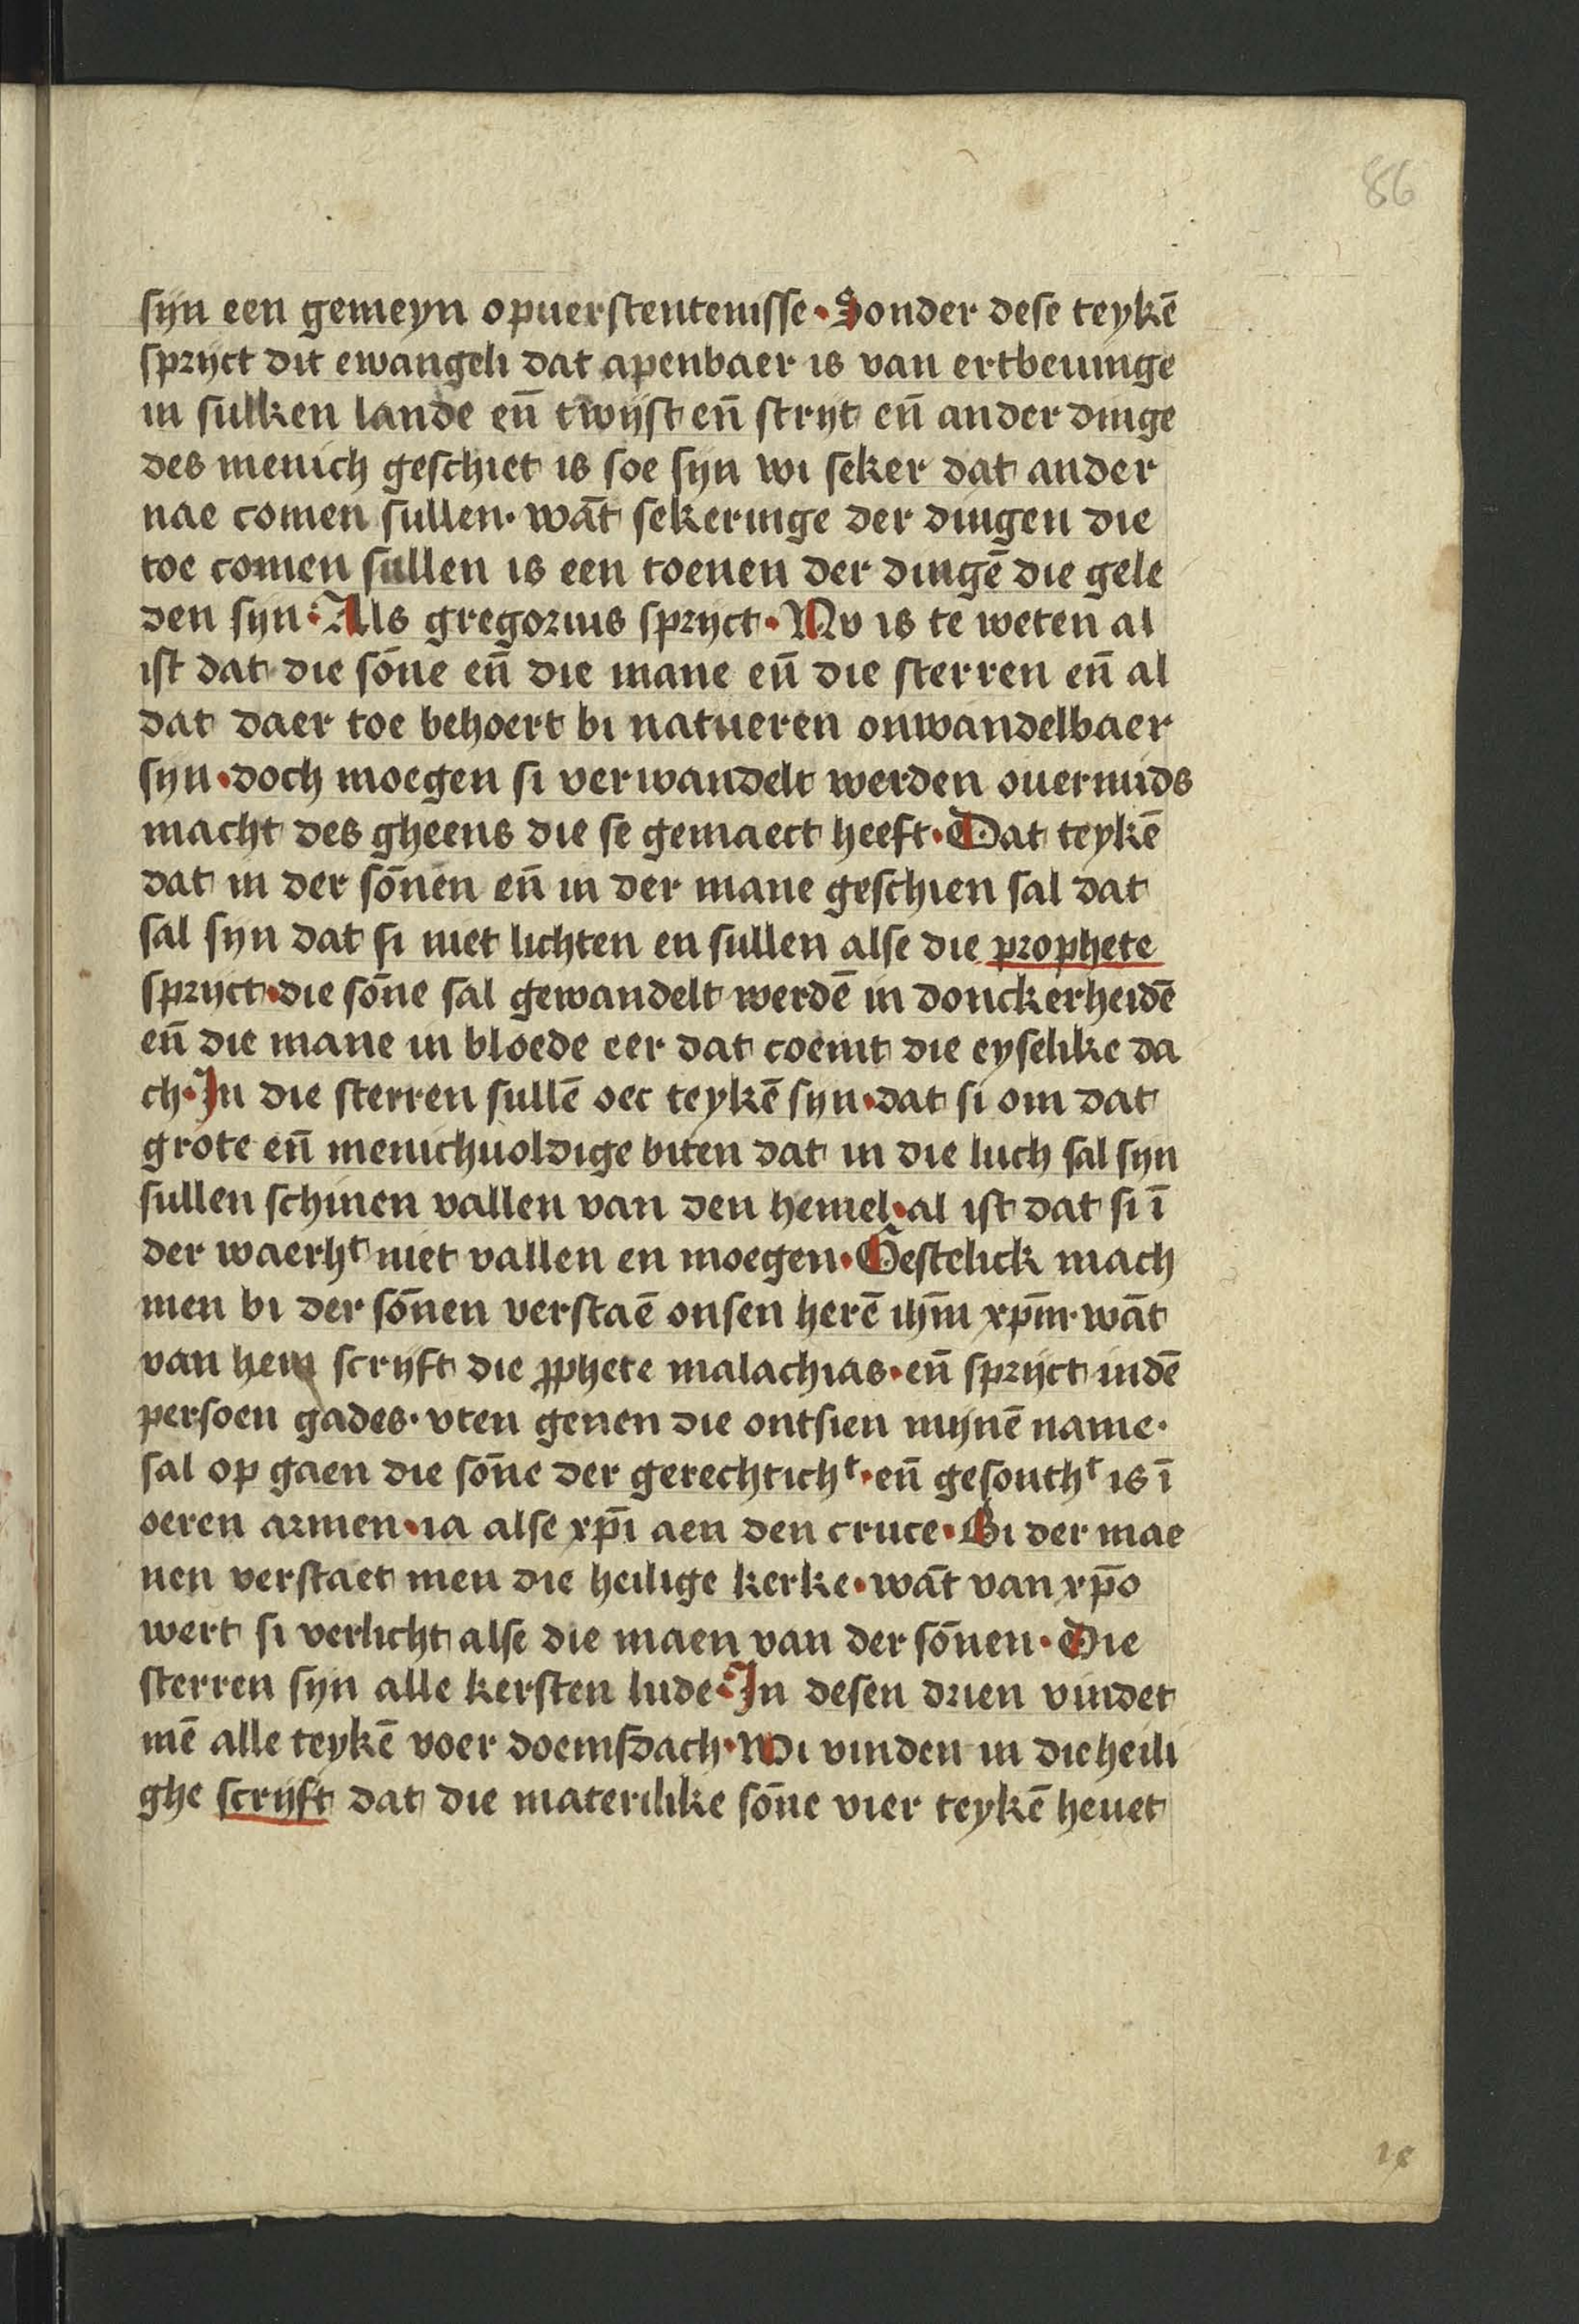 86
sijn een gemeyn opuerstentenisse · Sonder dese teykē
sprijct dit ewangeli dat apenbaer is van ertbeuinge
in sulken lande en̄ twijst en̄ strijt en̄ ander dinge
des menich geschiet is soe sijn wi seker dat ander
nae comen sullen · wāt sekeringe der dingen die
toe comen sullen is een toenen der dingē die gele
den sijn · Als gregorius sprijct · Nv is te weten al
ist dat die sōne en̄ die mane en̄ die sterren en̄ al
dat daer toe behoert bi natueren onwandelbaer
sijn · doch moegen si verwandelt werden ouermids
macht des gheens die se gemaect heeft · Dat teykē
dat in der sōnen en̄ in der mane geschien sal dat
sal sijn dat si niet lichten en sullen alse die prophete
sprijct · die sōne sal gewandelt werdē in donckerheidē
en̄ die mane in bloede eer dat coemt die eyselike da
ch · In die sterren sullē oec teykē sijn · dat si om dat
grote en̄ menichuoldige biten dat in die luch sal sijn
sullen schinen vallen van den hemel · al ist dat si ī
der waerhᵗ niet vallen en moegen · Gestelick mach
men bi der sōnen verstaē onsen herē ihm̄ xpm̄ · wāt
van hem scrijft die ꝓphete malachias · en̄ sprijct indē
persoen gades · vten genen die ontsien mijnē name ·
sal op gaen die sōne der gerechtichᵗ · en̄ gesonthᵗ is ī
oeren armen · ia alse xp̄i aen den cruce · Bi der mae
nen verstaet men die heilige kerke · wāt van xp̄o
wert si verlicht alse die maen van der sōnen · Die
sterren sijn alle kersten lude · In desen drien vindet
mē alle teykē voer doemsdach · Wi vinden in die heili
ghe scrijft dat die materilike sōne vier teykē heuet